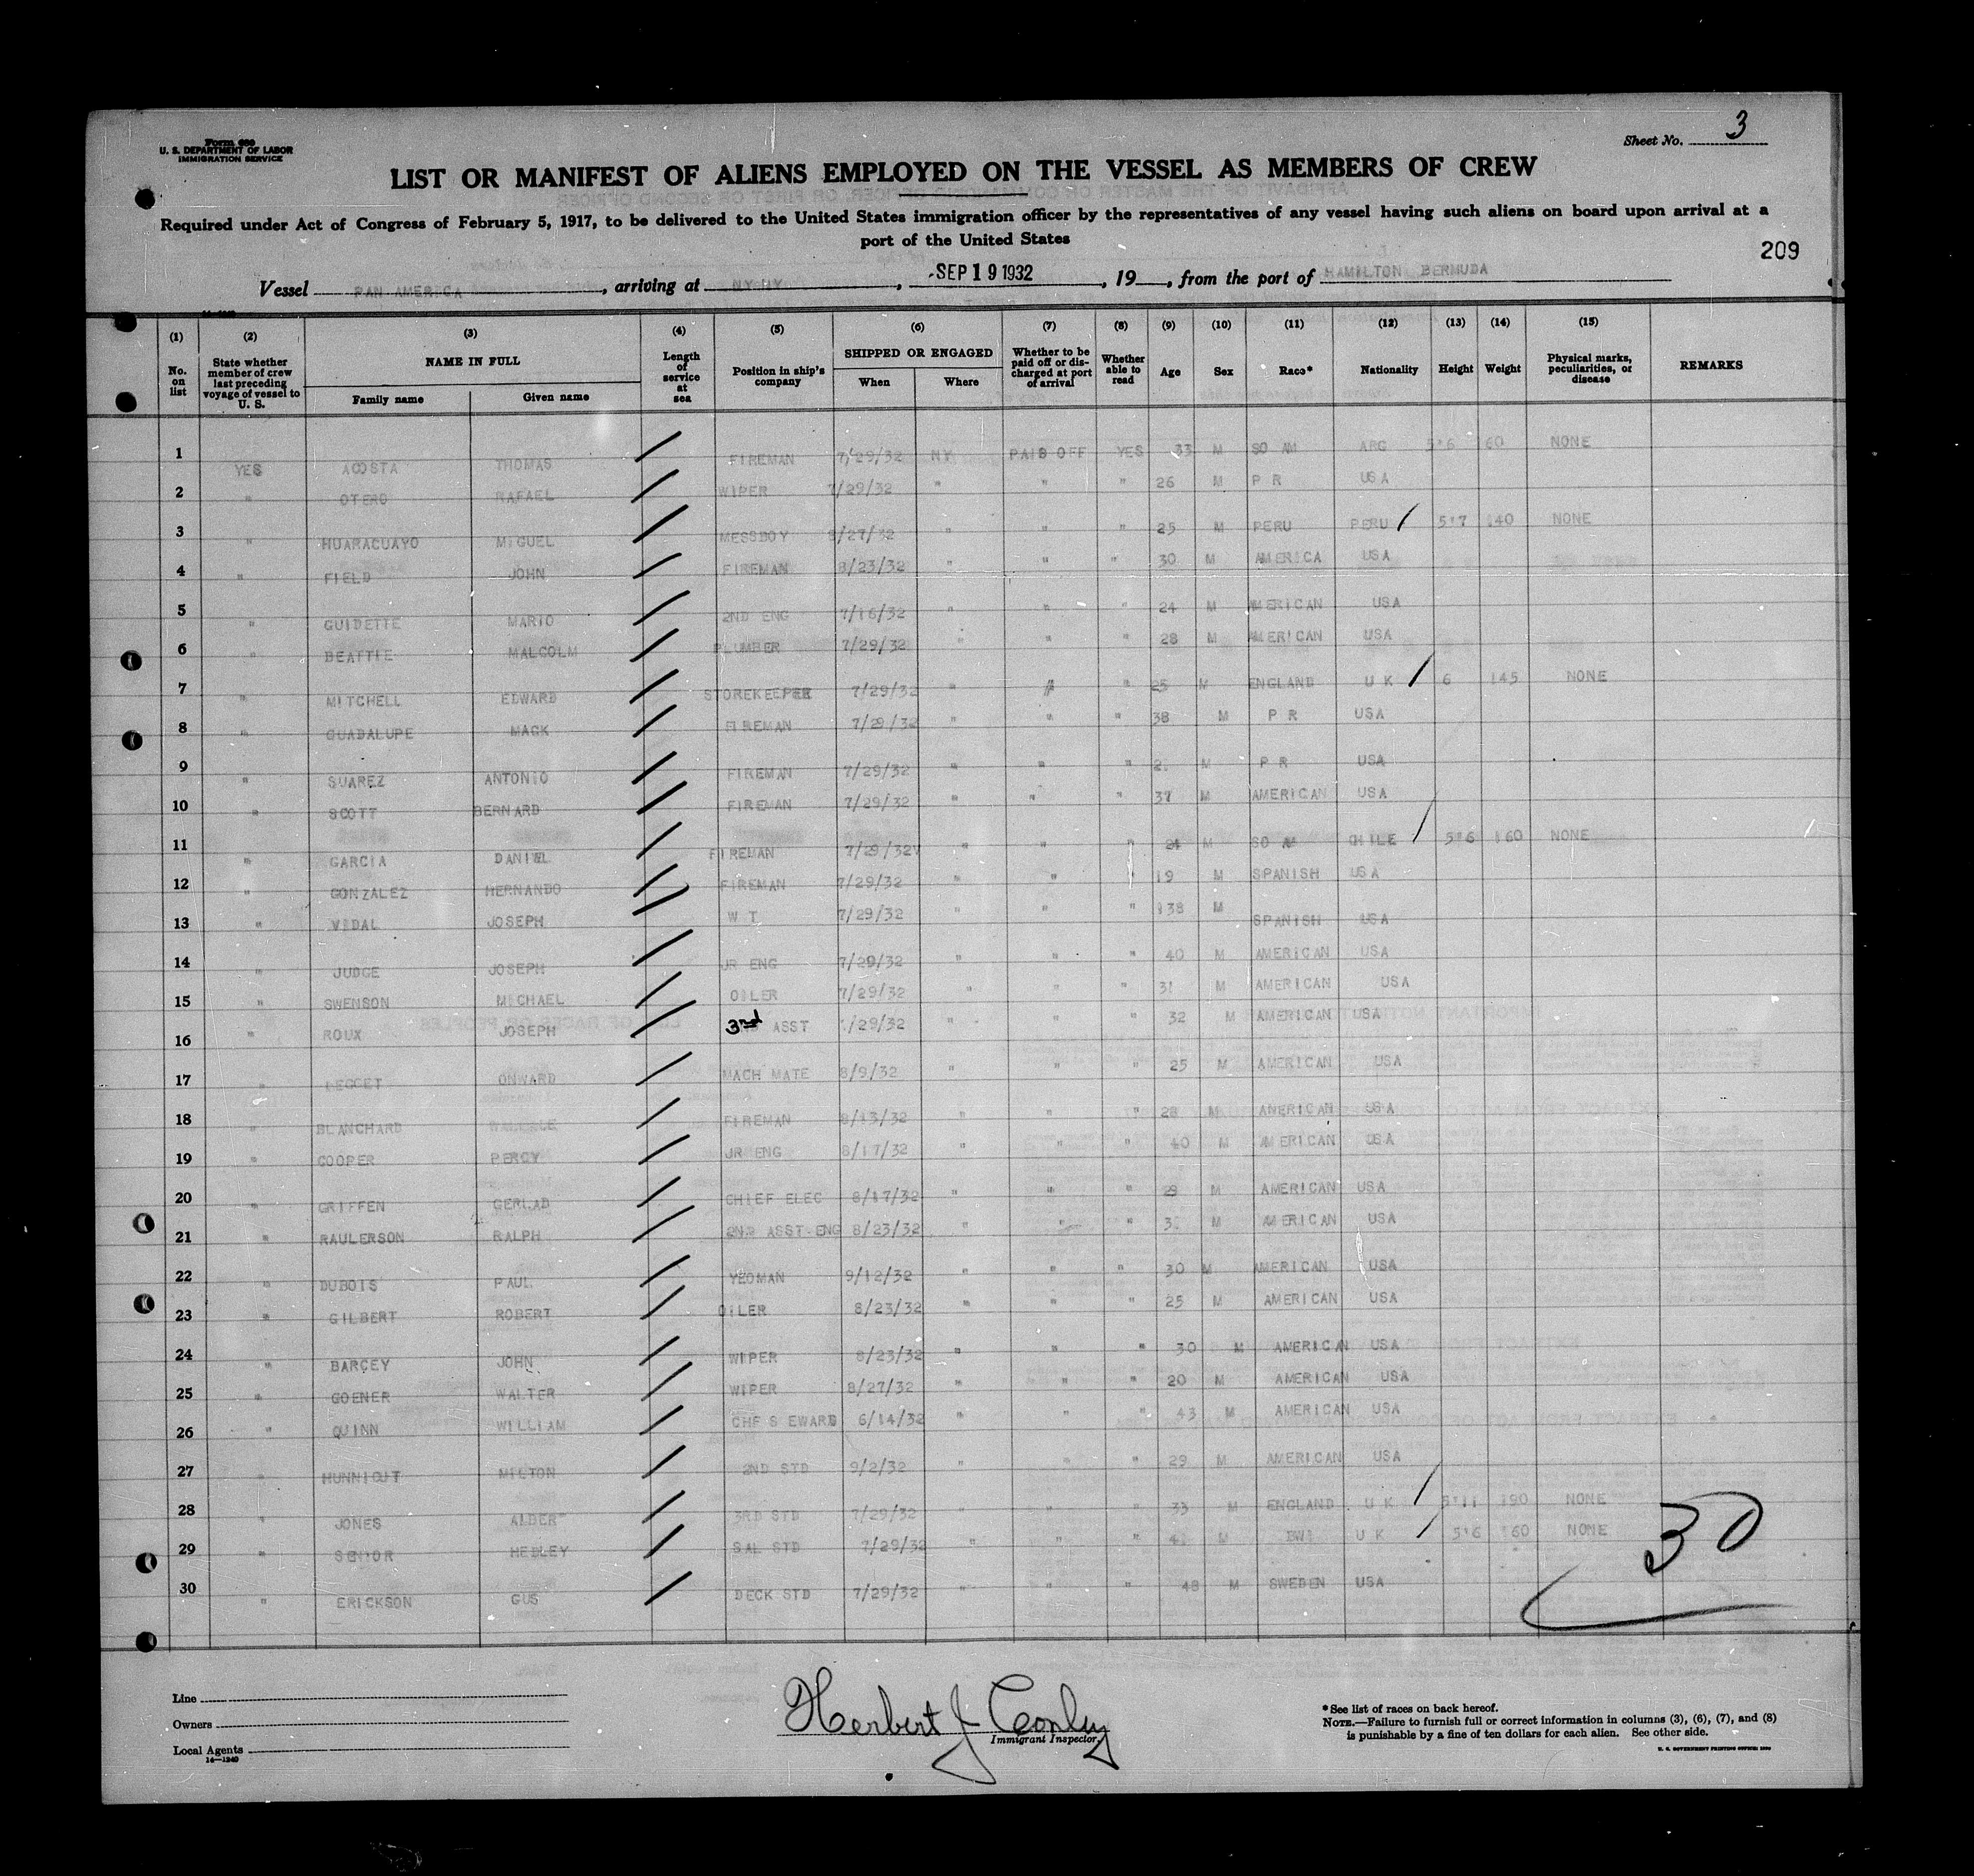 Form 680
U. S. DEPARTMENT OF LABOR
IMMIGRATION SERVICE
Sheet No. 3
LIST OR MANIFEST OF ALIENS EMPLOYED ON THE VESSEL AS MEMBERS OF CREW
Required under Act of Congress of February 5, 1917, to be delivered to the United States immigration officer by the representatives of any vessel having such aliens on board upon arrival at a
port of the United States
209
Vessel PAN AMERICA, arriving at NY NY, SEP 19 1932, 19__, from the port of HAMILTON BERMUDA
(1) (2) (3) (4) (5) (6) (7) (8) (9) (10) (11) (12) (13) (14) (15)
No. on list State whether member of crew last preceding voyage of vessel to U. S. NAME IN FULL Family name Given name Length of service at sea Position in ship's company SHIPPED OR ENGAGED When Where Whether to be paid off or discharged at port of arrival Whether able to read Age Sex Race* Nationality Height Weight Physical marks, peculiarities, or disease REMARKS
1 YES ACOSTA THOMAS FIREMAN 7/29/32 NY PAID OFF YES 33 M SO AM ARG 5'6 160 NONE
2 " OTERO RAFAEL WIPER 7/29/32 " " " 26 M P R USA
3 " HUARACUAYO MIGUEL MESSBOY 8/27/32 " " " 25 M PERU PERU 5'7 140 NONE
4 " FIELD JOHN FIREMAN 8/23/32 " " " 30 M AMERICA USA
5 " GUIDETTE MARIO 2ND ENG 7/16/32 " " " 24 M AMERICAN USA
6 " BEATTIE MALCOLM PLUMBER 7/29/32 " " " 28 M AMERICAN USA
7 " MITCHELL EDWARD STOREKEEPER 7/29/32 " " " 25 M ENGLAND U K 6 145 NONE
8 " GUADALUPE MACK FIREMAN 7/29/32 " " " 38 M P R USA
9 " SUAREZ ANTONIO FIREMAN 7/29/32 " " " M P R USA
10 " SCOTT BERNARD FIREMAN 7/29/32 " " " 37 M AMERICAN USA
11 " GARCIA DANIEL FIREMAN 7/29/32 " " " 24 M SO AM CHILE 5'6 160 NONE
12 " GONZALEZ HERNANDO FIREMAN 7/29/32 " " " 19 M SPANISH USA
13 " VIDAL JOSEPH W T 7/29/32 " " " 138 M SPANISH USA
14 " JUDGE JOSEPH JR ENG 7/29/32 " " 40 M AMERICAN USA
15 " SWENSON MICHAEL OILER 7/29/32 " " " 31 M AMERICAN USA
16 " ROUX JOSEPH 3rd ASST /29/32 " " " 32 M AMERICAN USA
17 " LEGGET ONWARD MACH MATE 8/9/32 " " " 25 M AMERICAN USA
18 " BLANCHARD FIREMAN 8/13/32 " " " 28 M AMERICAN USA
19 " COOPER PERCY JR ENG 8/17/32 " " " 40 M AMERICAN USA
20 " GRIFFEN GERLAD CHIEF ELEC 8/17/32 " " " M AMERICAN USA
21 " RAULERSON RALPH 2ND ASST-ENG 8/23/32 " " " M AMERICAN USA
22 " DUBOIS PAUL YEOMAN 9/12/32 " " " 30 M AMERICAN USA
23 " GILBERT ROBERT OILER 8/23/32 " " " 25 M AMERICAN USA
24 " BARCEY JOHN WIPER 8/23/32 " " " 30 M AMERICAN USA
25 " GOENER WALTER WIPER 8/27/32 " " " 20 M AMERICAN USA
26 " QUINN WILLIAM CHF S EWARD 6/14/32 " " " 43 M AMERICAN USA
27 " HUNNICUT MILTON 2ND STD 9/2/32 " " " 29 M AMERICAN USA
28 " JONES ALBER 3RD STD 7/29/32 " " " 33 M ENGLAND U K 5'11 190 NONE
29 " SENIOR HEDLEY SAL STD 7/29/32 " " " M BWI U K 5'6 160 NONE
30 " ERICKSON GUS DECK STD 7/29/32 " " " 48 M SWEDEN USA
30
Line
Owners
Local Agents
14—1240
Herbert J Conley
Immigrant Inspector.
*See list of races on back hereof.
NOTE.—Failure to furnish full or correct information in columns (3), (6), (7), and (8)
is punishable by a fine of ten dollars for each alien. See other side.
U. S. GOVERNMENT PRINTING OFFICE: 1930